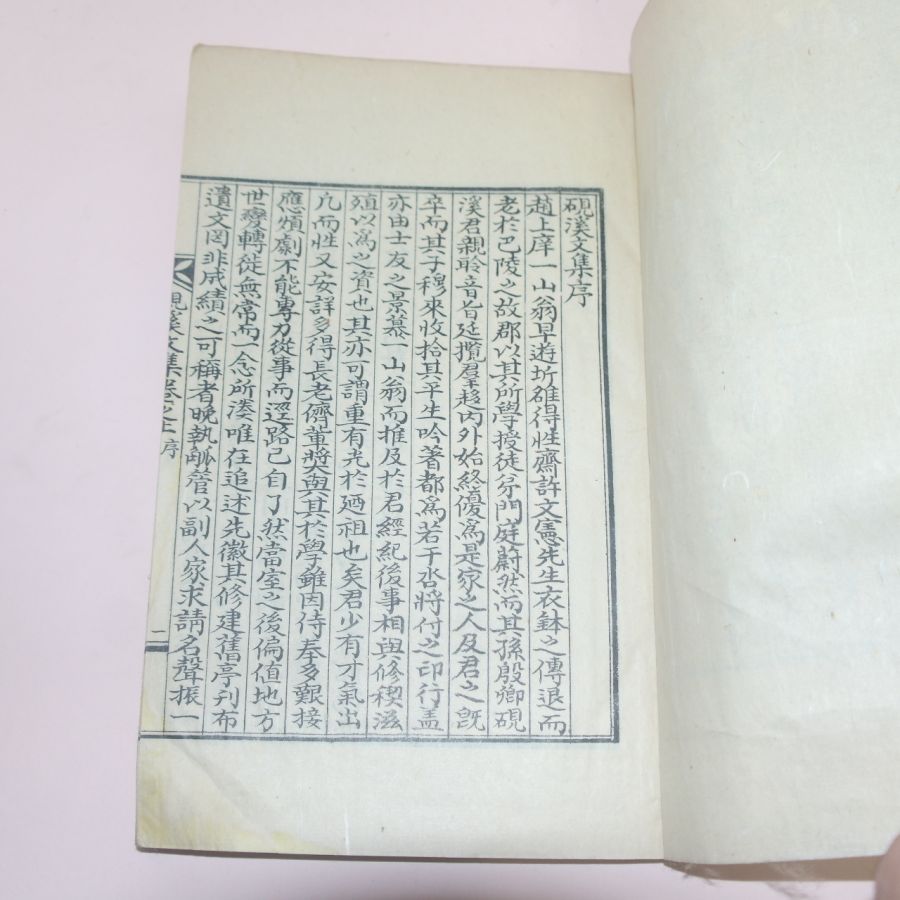 硯溪文集序
趙上庠一山翁早遊圻雒得性齋許文憲先生衣鉢之傳退而
老於巴陵之故郡以其所學授徒弟門庭蔚然而其孫殷卿硯
溪君親聆音旨廷攬羣趍內外始終優爲是家之人及君之旣
卒而其子穆來收拾其平生吟著都爲若干沓將付之印行盖
亦由士友之景慕一山翁而推及於君經紀後事相與修稧滋
殖以爲之資也其亦可謂重有光於廼祖也矣君少有才氣出
凡而性又安詳多得長老儕輩奬與其於學雖因侍奉多艱接
應煩劇不能專力從事而逕路已自了然當室之後偏値地方
世變轉徙無常而一念所湊唯在追述先徽其修建舊亭刋布
遺文罔非成績之可稱者晩執觚管以副人家求請名聲振一
硯溪文集卷之上 序
一